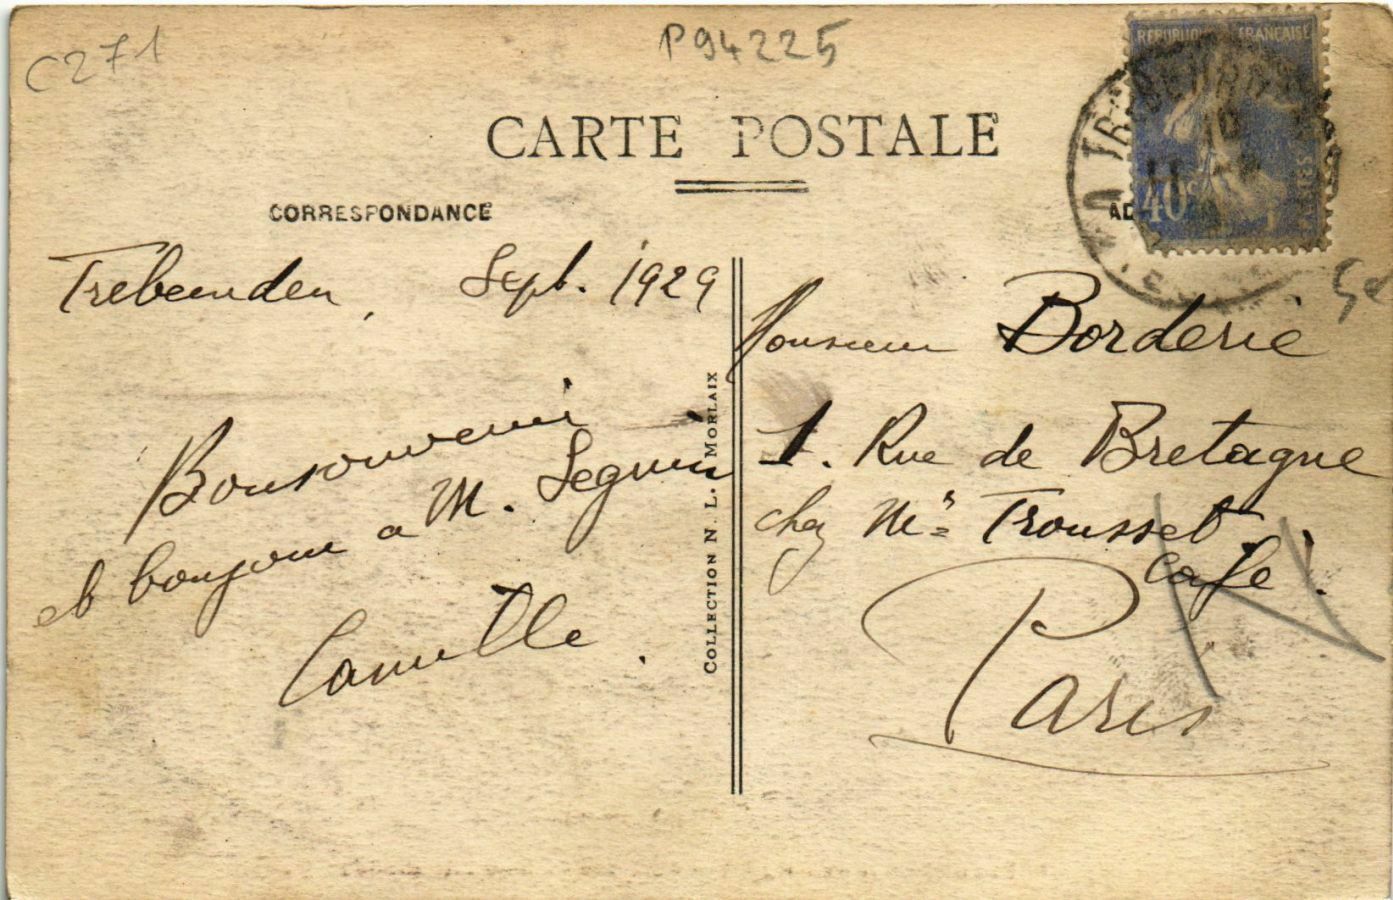 C271
P94225
CARTE POSTALE
CORRESPONDANCE
AD
RÉPUBLIQUE FRANÇAISE
40c
POSTES
Trebeurden, Sept. 1929
Bonsouvenir
et bonjour a M. Seguin
Camille.
COLLECTION N. L. MORLAIX
Monsieur Borderie
1. Rue de Bretagne
chez Mr Trousset
Café.
Paris